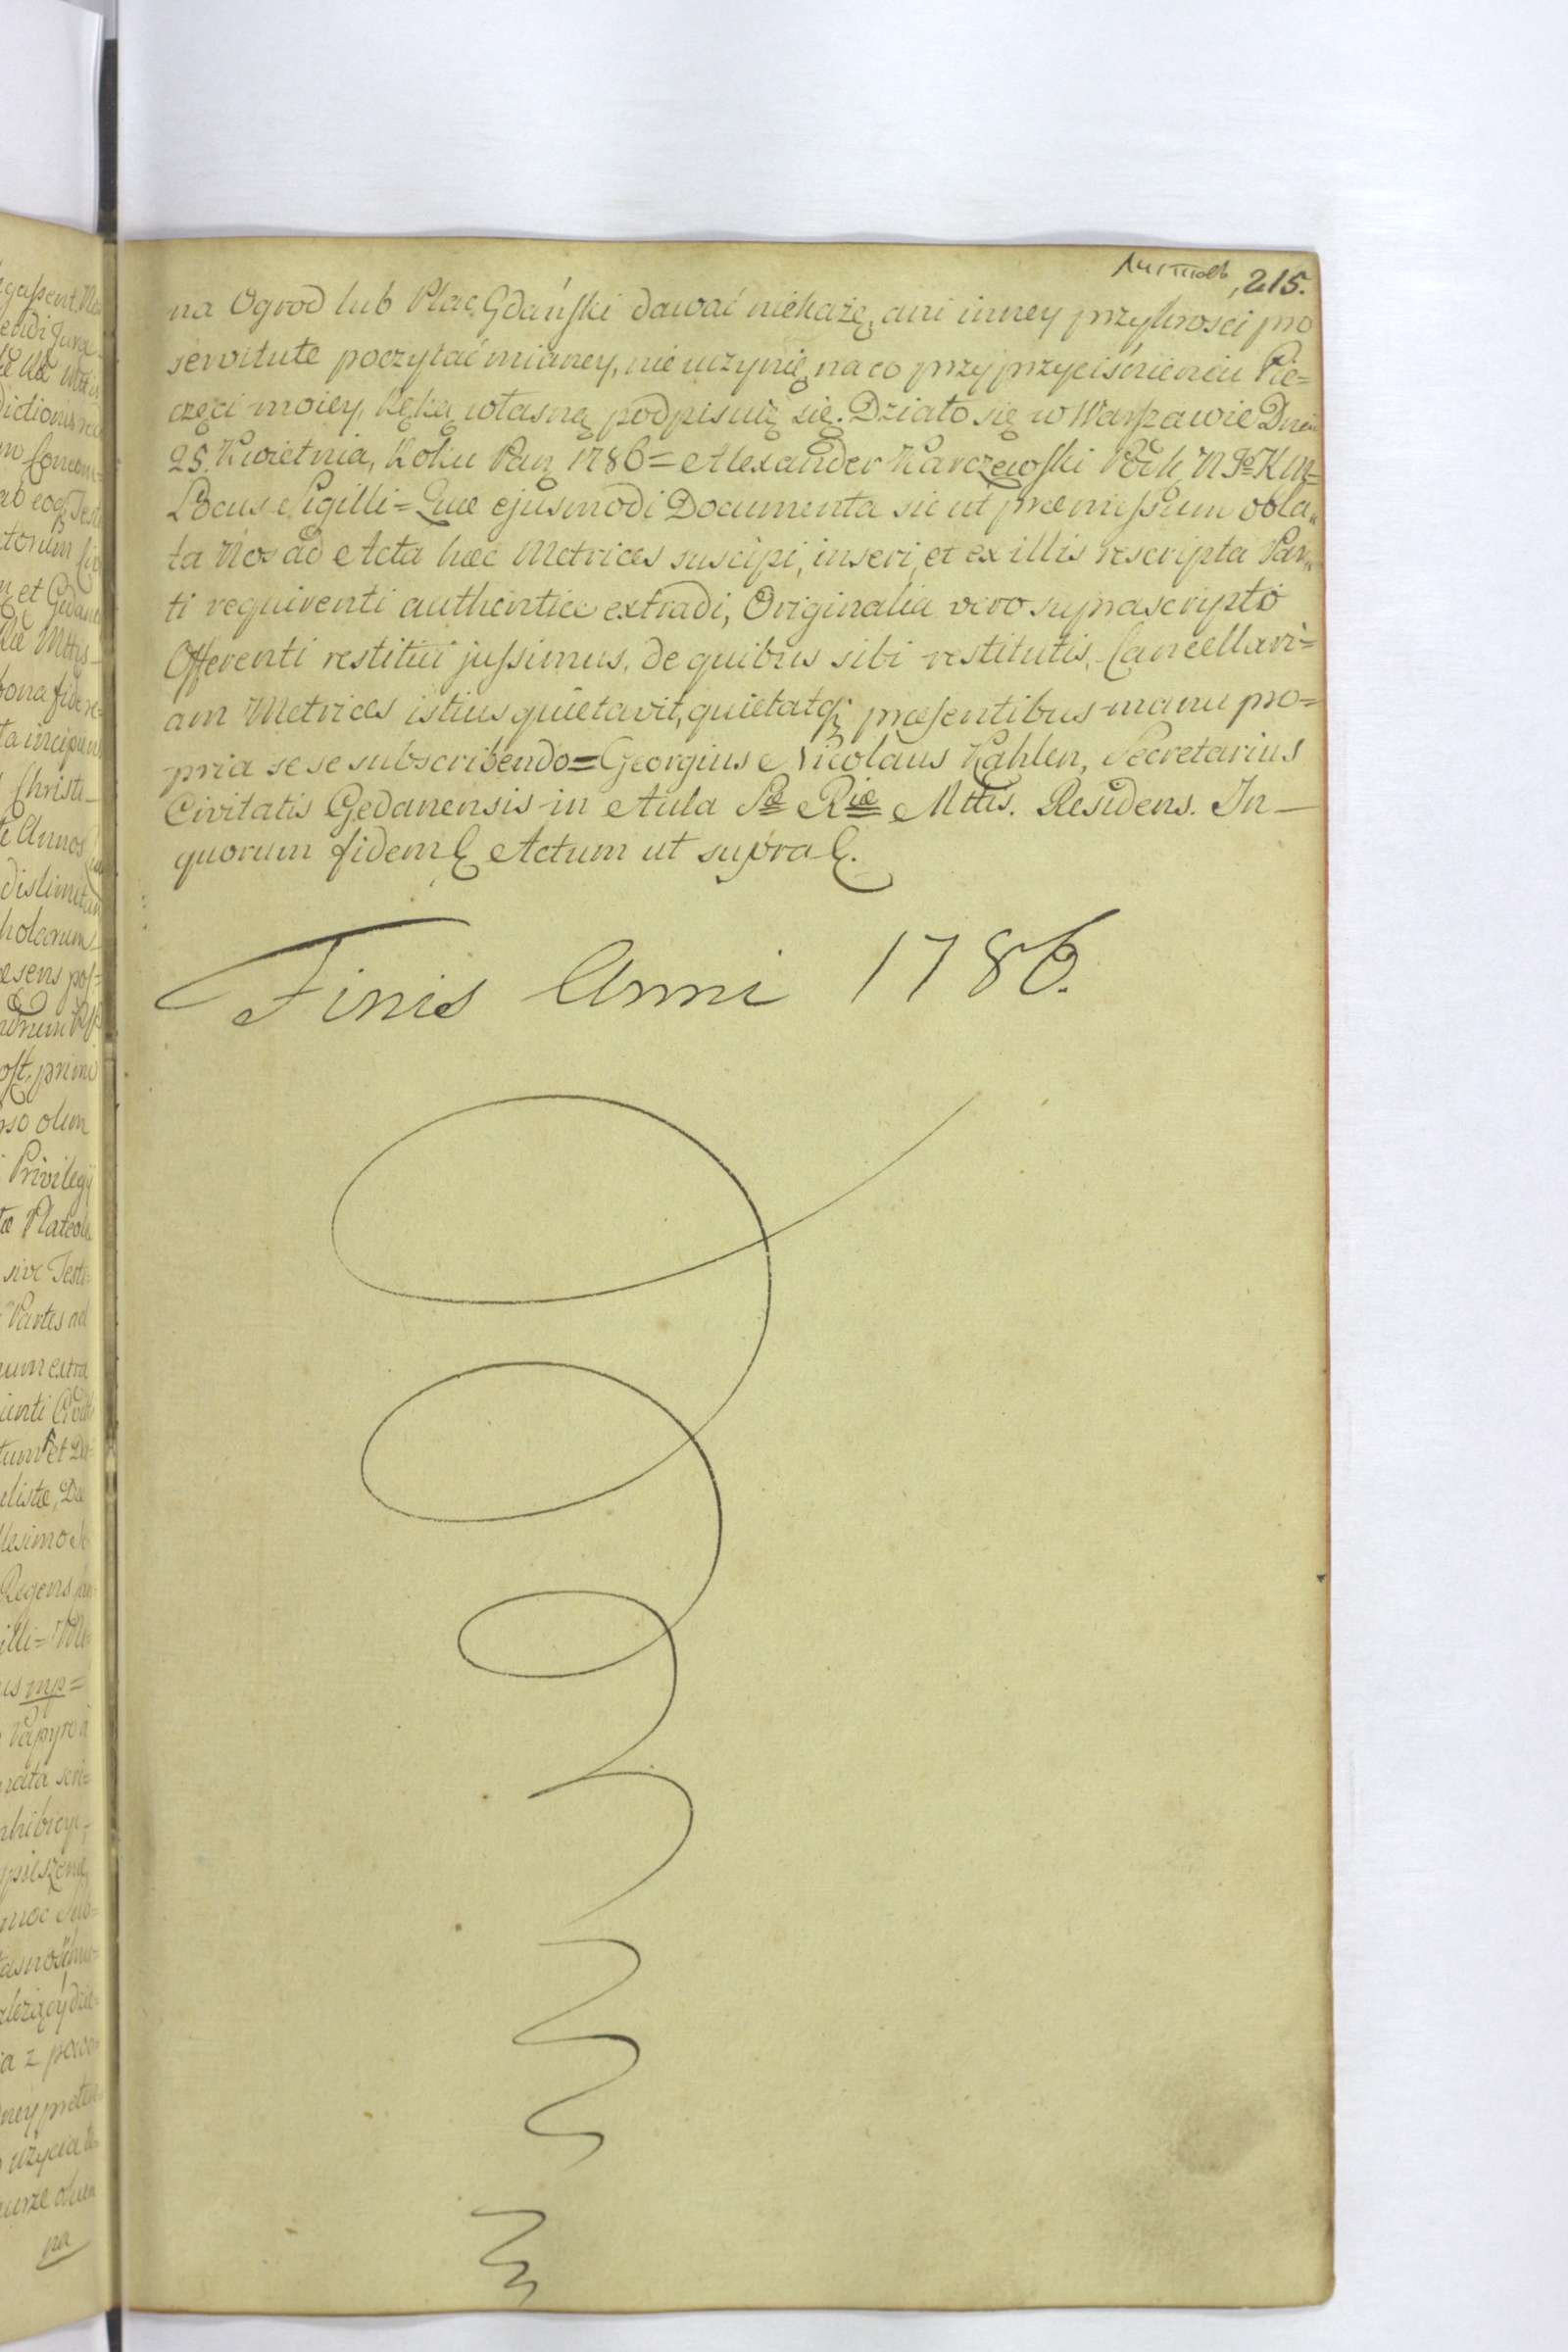 Листовъ 215.
na Ogrod lub Plac Gdański dawać niekażę, ani inney przykrosci pro
servitute poczytać mianey, nie uczynię na co przy przyciśnieniu Pie=
częci moiey, Ręką własną podpisuię się. Działo się w Warszawie Dnia
25. Kwietnia, Roku Pań 1786 = Alexander Karczewski
Locus Sigilli = Quæ ejusmodi Documenta sic ut præmissum obla„
ta Nos ad Acta hæc Metrices suscipi, inseri, et ex illis rescripta Par„
ti requirenti authentice extradi, Originalia vero suprascripto
Offerenti restitui jussimus, de quibus sibi restitutis, Cancellari=
am Metrices istius quietavit, quietatq; præsentibus manu pro=
pria se se subscribendo = Georgius Nicolaus Kahlen, Secretarius
Civitatis Gedanensis in Aula Sæ Riæ Mttis. Residens. In
quorum fidem Actum ut supra
Finis Anni 1786.